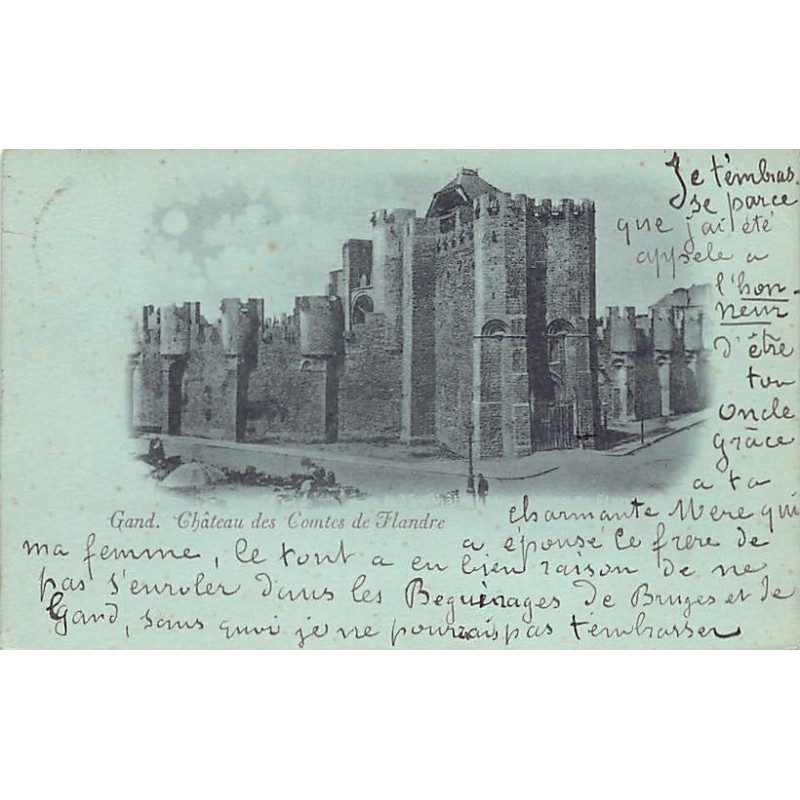 Je t'embras
se parce
que j'ai été
appelé a
l'hon-
neur
d'être
ton
oncle
grâce
a ta
charmante Mère qui
Gand. Château des Comtes de Flandre
a épousé le frère de
ma femme, le tout a en bien raison de ne
pas s'enroler dans les Beguinages de Bruges et de
Gand, sans quoi je ne pourrais pas t'embrasser